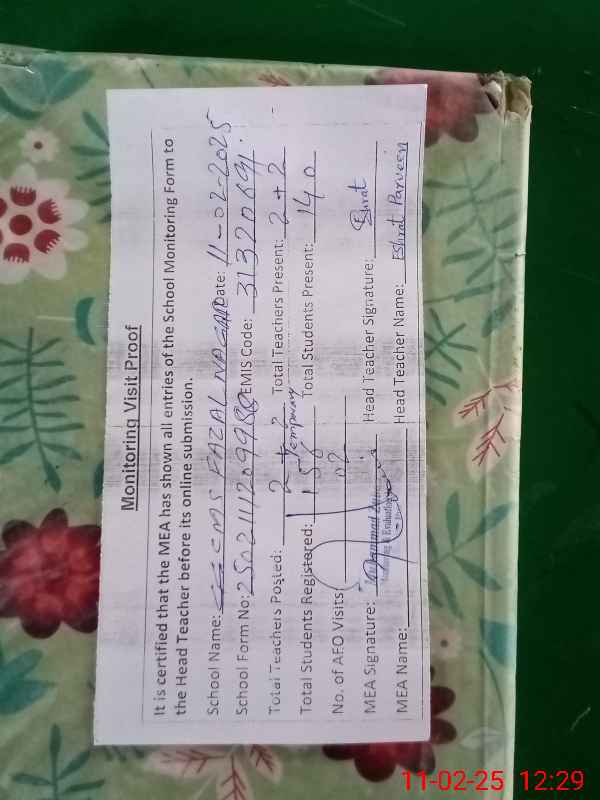 Monitoring Visit Proof
It is certified that the MEA has shown all entries of the School Monitoring Form to
the Head Teacher before its online submission.
School Name: CMS FAZAL NAGAR Date: 11-02-2025
School Form No: EMIS Code: 31320691
Total Teachers Posted: 2 + 2 Temporary Total Teachers Present: 2 + 2
Total Students Registered: 156 Total Students Present: 140
No. of AEO Visits: 02
MEA Signature: Muhammad Head Teacher Signature: Eshrat
MEA Name: Head Teacher Name: Eshrat Parveen
11-02-25 12:29